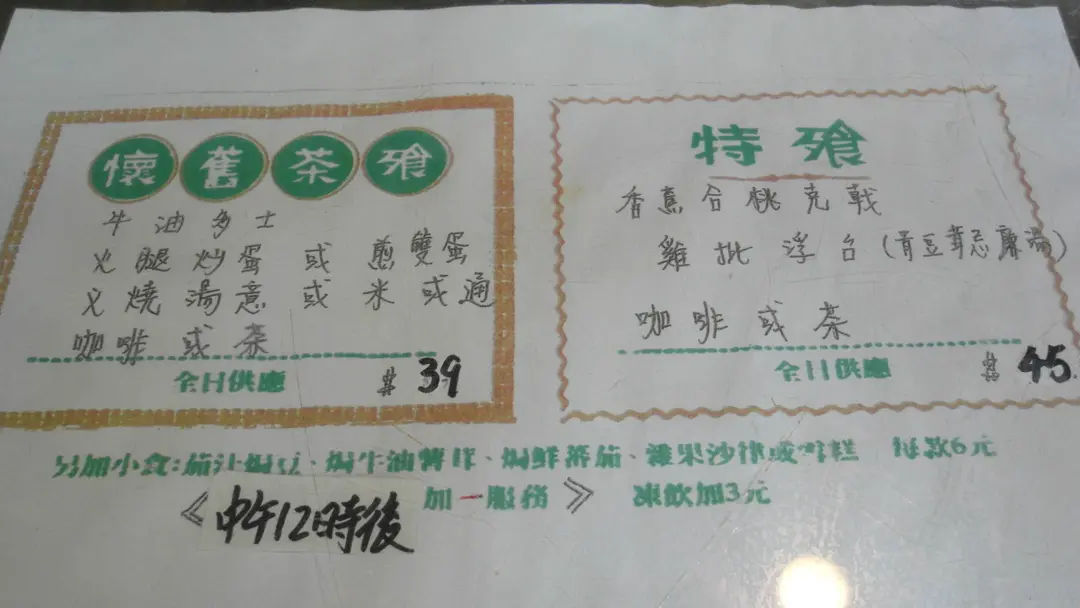 懷舊茶飱
牛油多士
火腿炒蛋 或 煎雙蛋
叉燒湯意 或 米 或 通
咖啡 或 茶
全日供應 $39
特飱
香蕉合桃克戟
雞批浮台(青豆茸忌廉湯)
咖啡 或 茶
全日供應 $45
另加小食:茄汁焗豆、焗牛油薯茸、焗鮮蕃茄、雜果沙律或雪糕 每款6元
《中午12時後 加一服務》 凍飲加3元